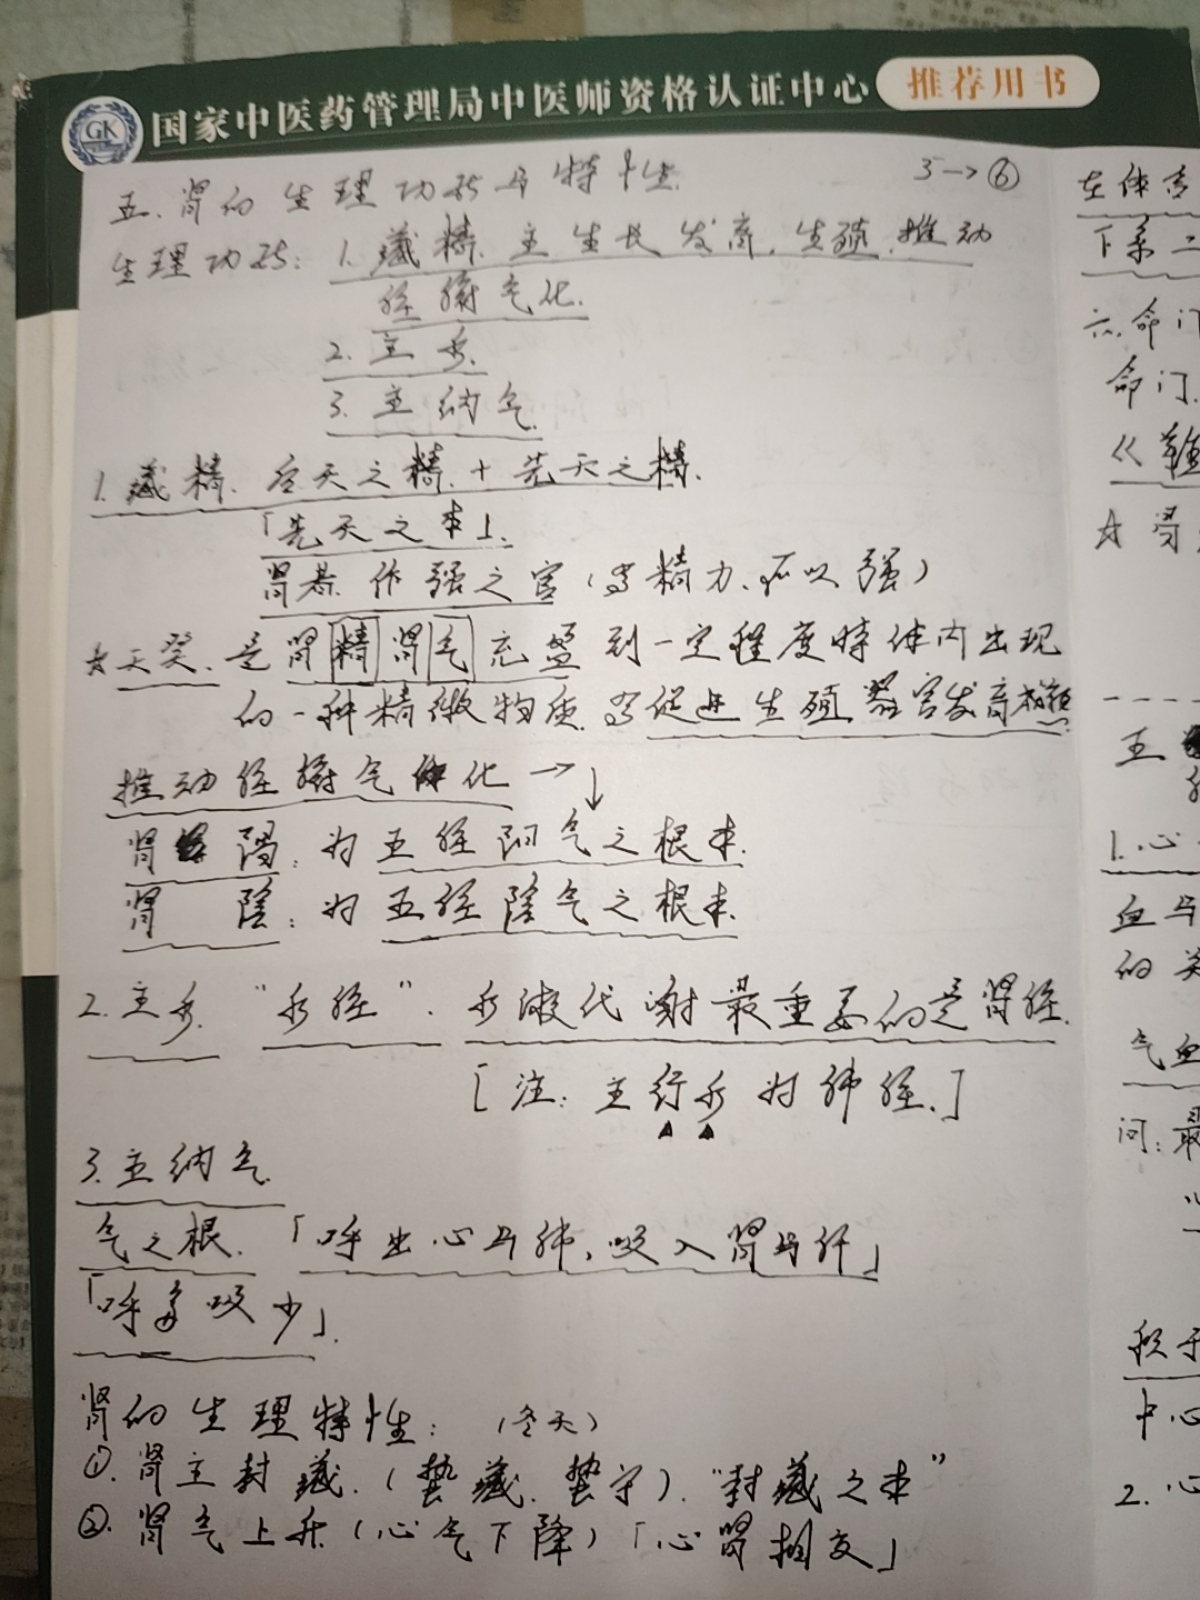 国家中医药管理局中医师资格认证中心 推荐用书
GK
五、肾的生理功能与特性. 5→⑥
生理功能: 1. 藏精、主生长发育、生殖、推动
脏腑气化.
2. 主水.
3. 主纳气.
1. 藏精. 后天之精 + 先天之精.
「先天之本」.
肾者 作强之官（与精力、所以强）
☆天癸. 是肾精肾气充盈到一定程度时体内出现
的一种精微物质. 与促进生殖器官发育
推动脏腑气化 → ↓
肾阳: 为五脏阳气之根本.
肾阴: 为五脏阴气之根本.
2. 主水. “水脏”. 水液代谢最重要的是肾脏.
[注: 主行水为肺脏.]
3. 主纳气.
气之根. 「呼出心与肺, 吸入肾与肝」
「呼多吸少」.
肾的生理特性: （冬天）
①. 肾主封藏.（蛰藏. 蛰守）. “封藏之本”
②. 肾气上升（心气下降）「心肾相交」
左体
下系二
六. 命门
命门.
《难
☆ 肾
五
1. 心
血与
的关
气血
问: 最
积于
中心
2. 心